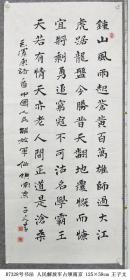 鍾山風雨起蒼黃百萬雄師過大江
虎踞龍盤今勝昔天翻地覆慨而慷
宜將剩勇追窮寇不可沽名學霸王
天若有情天亦老人間正道是滄桑
毛澤東詩一首中國人民解放軍佔領南京
87329号书法 人民解放军占领南京 125×58cm 王子文